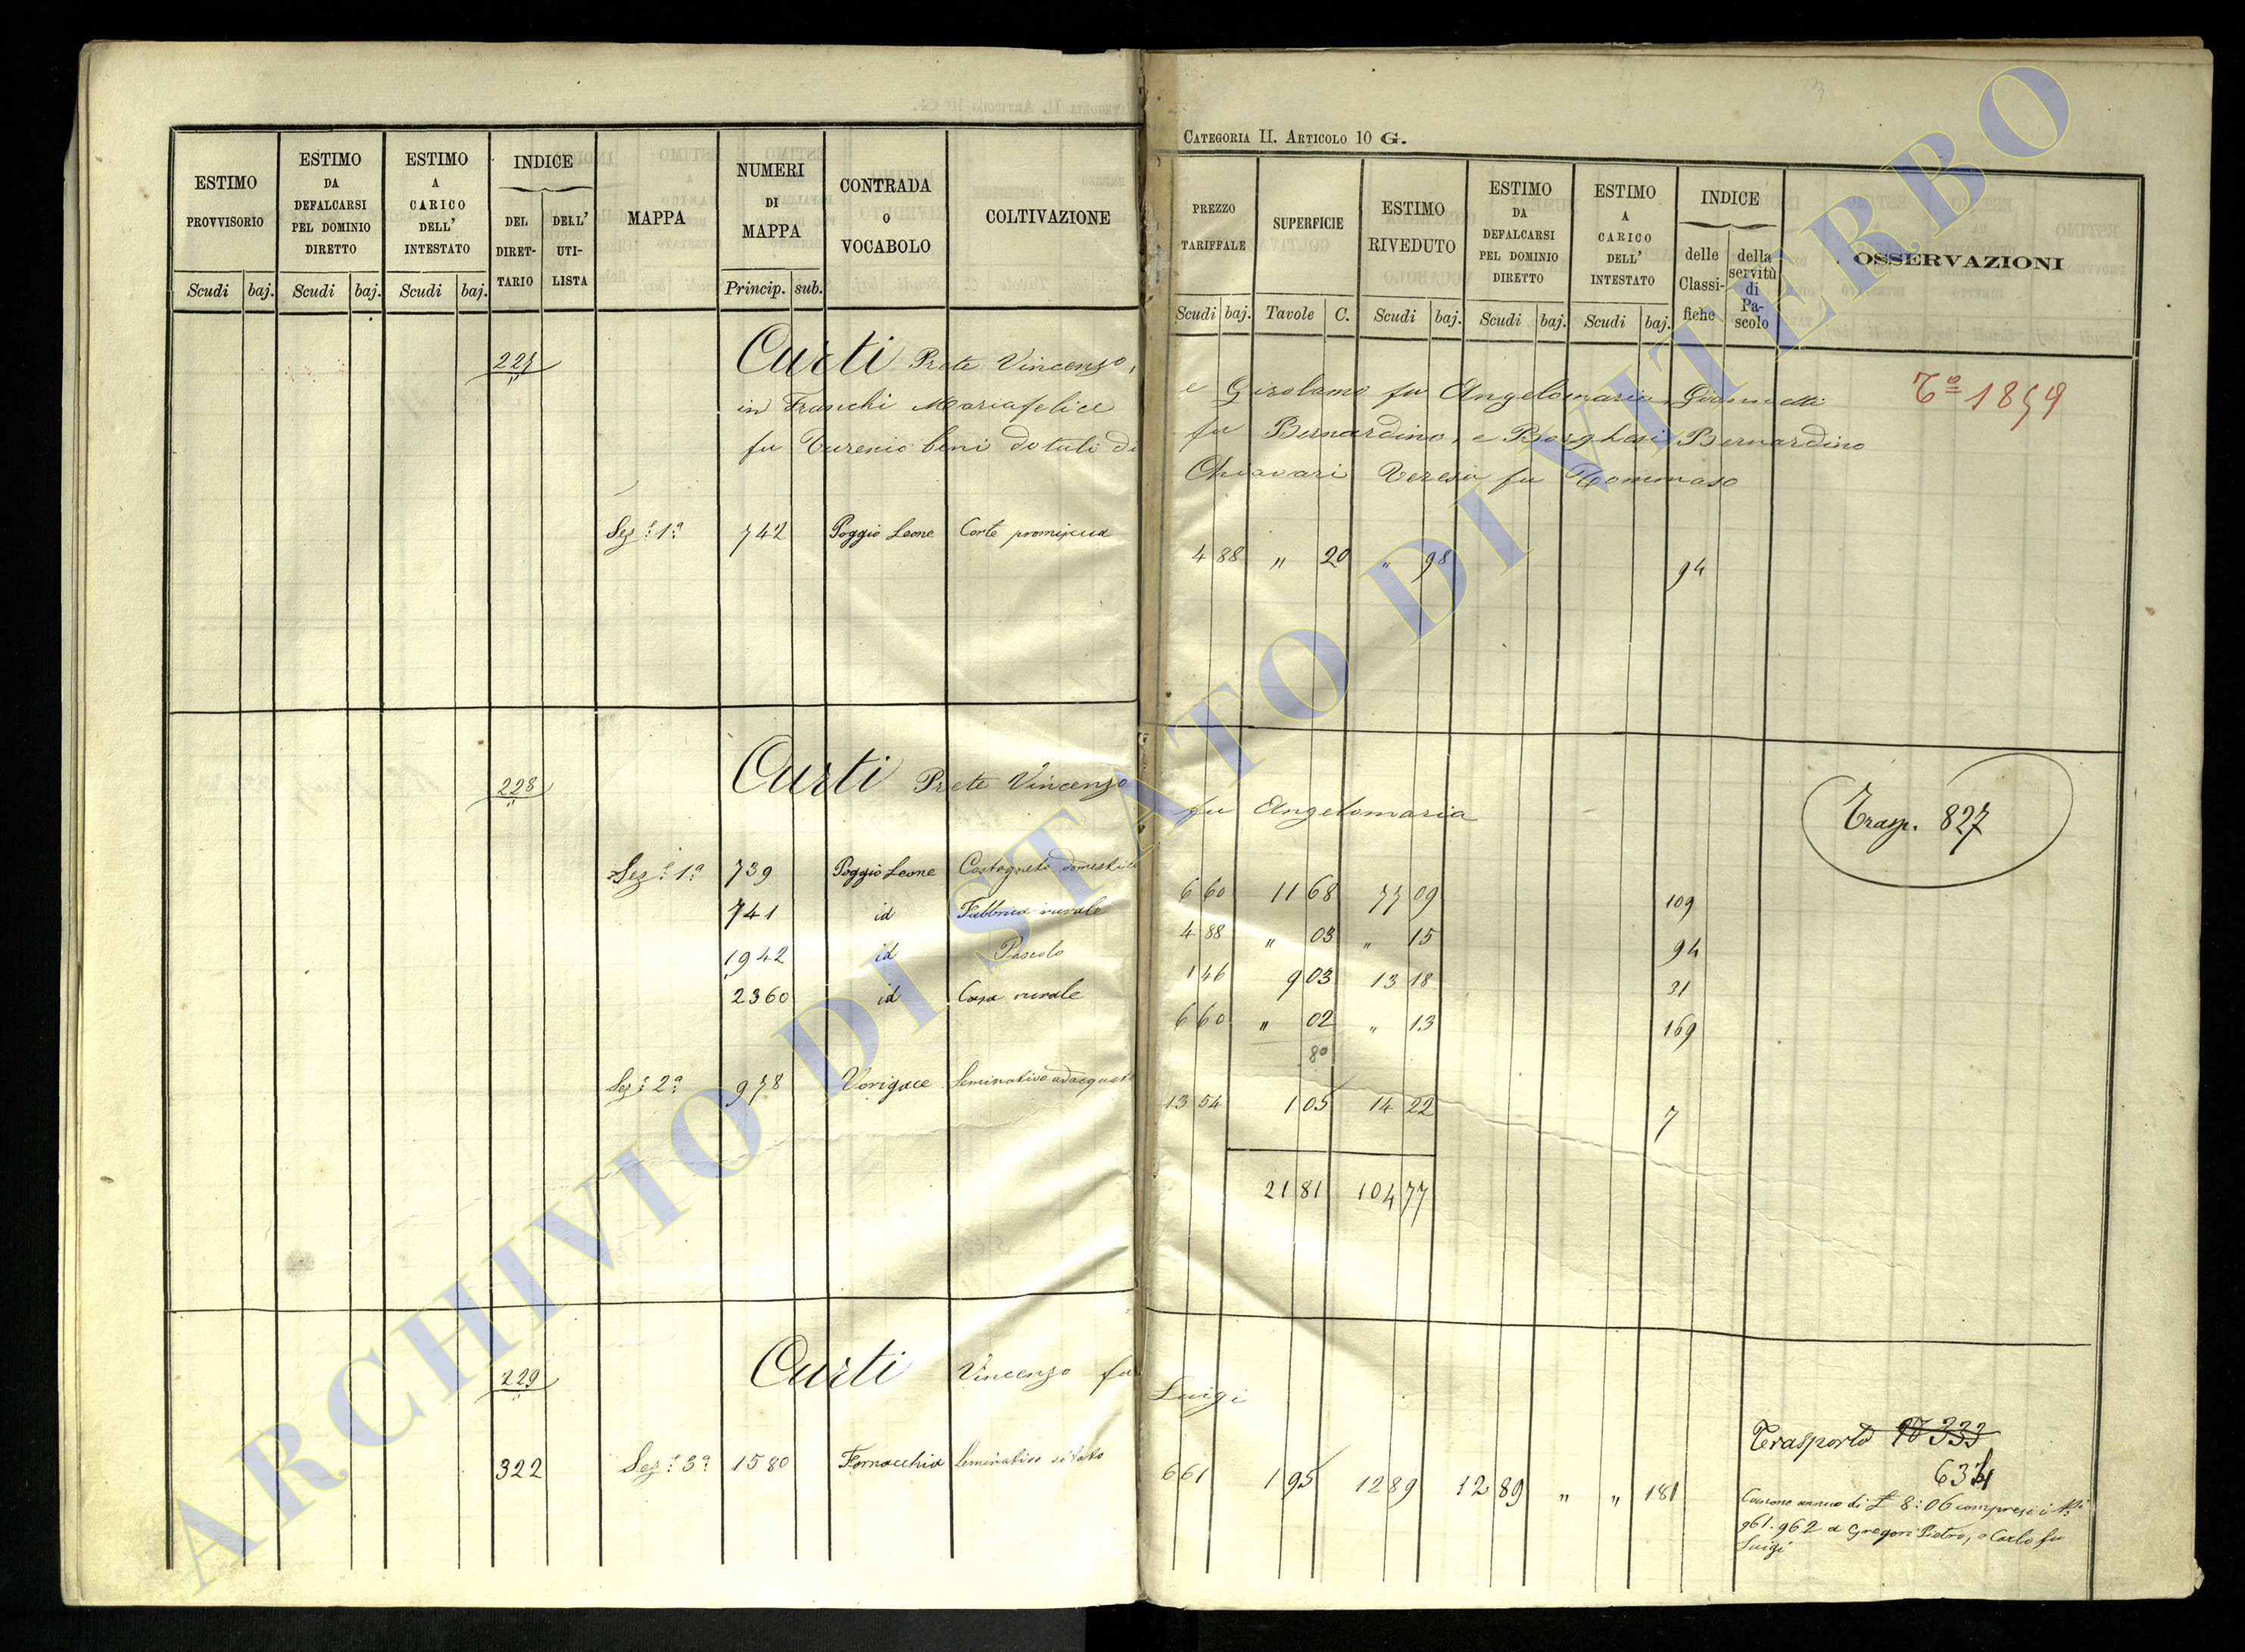 CATEGORIA II. ARTICOLO 10 G.
ESTIMO PROVVISORIO
ESTIMO DA DEFALCARSI PEL DOMINIO DIRETTO
ESTIMO A CARICO DELL' INTESTATO
INDICE
DEL DIRETTARIO
DELL' UTILISTA
MAPPA
NUMERI DI MAPPA
CONTRADA O VOCABOLO
COLTIVAZIONE
Scudi baj. Scudi baj. Scudi baj. Princip. sub.
PREZZO TARIFFALE
SUPERFICIE
ESTIMO RIVEDUTO
ESTIMO DA DEFALCARSI PEL DOMINIO DIRETTO
ESTIMO A CARICO DELL' INTESTATO
INDICE
delle Classifiche
della servitù di Pascolo
OSSERVAZIONI
Scudi baj. Tavole C. Scudi baj. Scudi baj. Scudi baj.
227 Curti Prete Vincenzo, e Girolamo fu Angelomaria, Giannotti
in Franchi Mariafelice fu Bernardino, e Borghesi Bernardino
fu Turenio beni dotali di Chiavari Teresa fu Tommaso
Tº 1859
Sez.e 1a 742 Poggio Leone Corte promiscua 4 88 " 20 " 98 94
228 Curti Prete Vincenzo fu Angelomaria
Trasp. 827
Sez.e 1a 739 Poggio Leone Castagneto domestico 6 60 11 68 77 09 109
741 id Fabbrica rurale 4 88 " 03 " 15 94
1942 id Pascolo 1 46 9 03 13 18 31
2360 id Casa rurale 6 60 " 02 " 13 169
80
Sez.e 2a 978 Vorigace Seminativo adacquat 13 54 1 05 14 22 7
21 81 104 77
229 Curti Vincenzo fu Luigi
Trasporto 333
634
322 Sez.e 3a 1580 Fornacchia Seminativo vitato 6 61 1 95 12 89 12 89 " " 181
Canone annuo di £ 8:06 compresi i Nri
961. 962 a Gregori Pietro, e Carlo fu
Luigi
ARCHIVIO DI STATO DI VITERBO